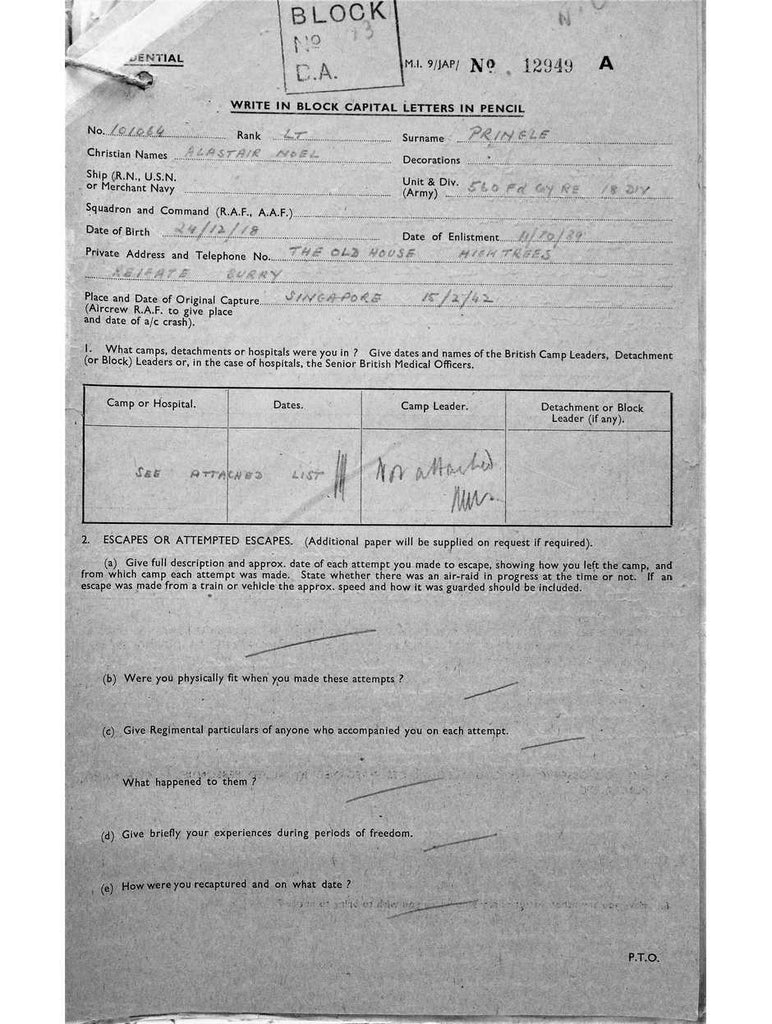 BLOCK
No 13
D.A.
DENTIAL
M.I. 9/JAP/ No. 12949 A
WRITE IN BLOCK CAPITAL LETTERS IN PENCIL
No. 101064 Rank LT Surname PRINGLE
Christian Names ALASTAIR NOEL Decorations
Ship (R.N., U.S.N. or Merchant Navy
Unit & Div. (Army) 560 FD COY RE 18 DIV
Squadron and Command (R.A.F., A.A.F.)
Date of Birth 24/12/18 Date of Enlistment 11/10/39
Private Address and Telephone No. THE OLD HOUSE HIGH TREES
REIGATE SURRY
Place and Date of Original Capture SINGAPORE 15/2/42
(Aircrew R.A.F. to give place
and date of a/c crash).
1. What camps, detachments or hospitals were you in ? Give dates and names of the British Camp Leaders, Detachment
(or Block) Leaders or, in the case of hospitals, the Senior British Medical Officers.
Camp or Hospital. Dates. Camp Leader. Detachment or Block
Leader (if any).
SEE ATTACHED LIST Not attached
2. ESCAPES OR ATTEMPTED ESCAPES. (Additional paper will be supplied on request if required).
(a) Give full description and approx. date of each attempt you made to escape, showing how you left the camp, and
from which camp each attempt was made. State whether there was an air-raid in progress at the time or not. If an
escape was made from a train or vehicle the approx. speed and how it was guarded should be included.
(b) Were you physically fit when you made these attempts ?
(c) Give Regimental particulars of anyone who accompanied you on each attempt.
What happened to them ?
(d) Give briefly your experiences during periods of freedom.
(e) How were you recaptured and on what date ?
P.T.O.